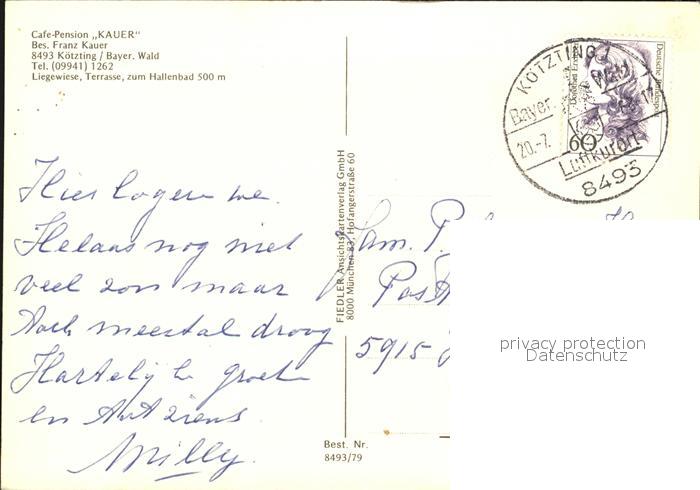 Cafe-Pension „KAUER"
Bes. Franz Kauer
8493 Kötzting / Bayer. Wald
Tel. (09941) 1262
Liegewiese, Terrasse, zum Hallenbad 500 m
Hier logeren we.
Helaas nog niet
veel zon maar
toch meestal droog
Hartelijke groeten
en tot ziens
Milly.
FIEDLER Ansichtskartenverlag GmbH
8000 München 83, Hofangerstraße 60
Best. Nr.
8493/79
KÖTZTING 1
Bayer. Wald
20.-7.
Luftkurort
8493
Deutsche Bundespost
60
Fam. P.
Post
5915
privacy protection
Datenschutz